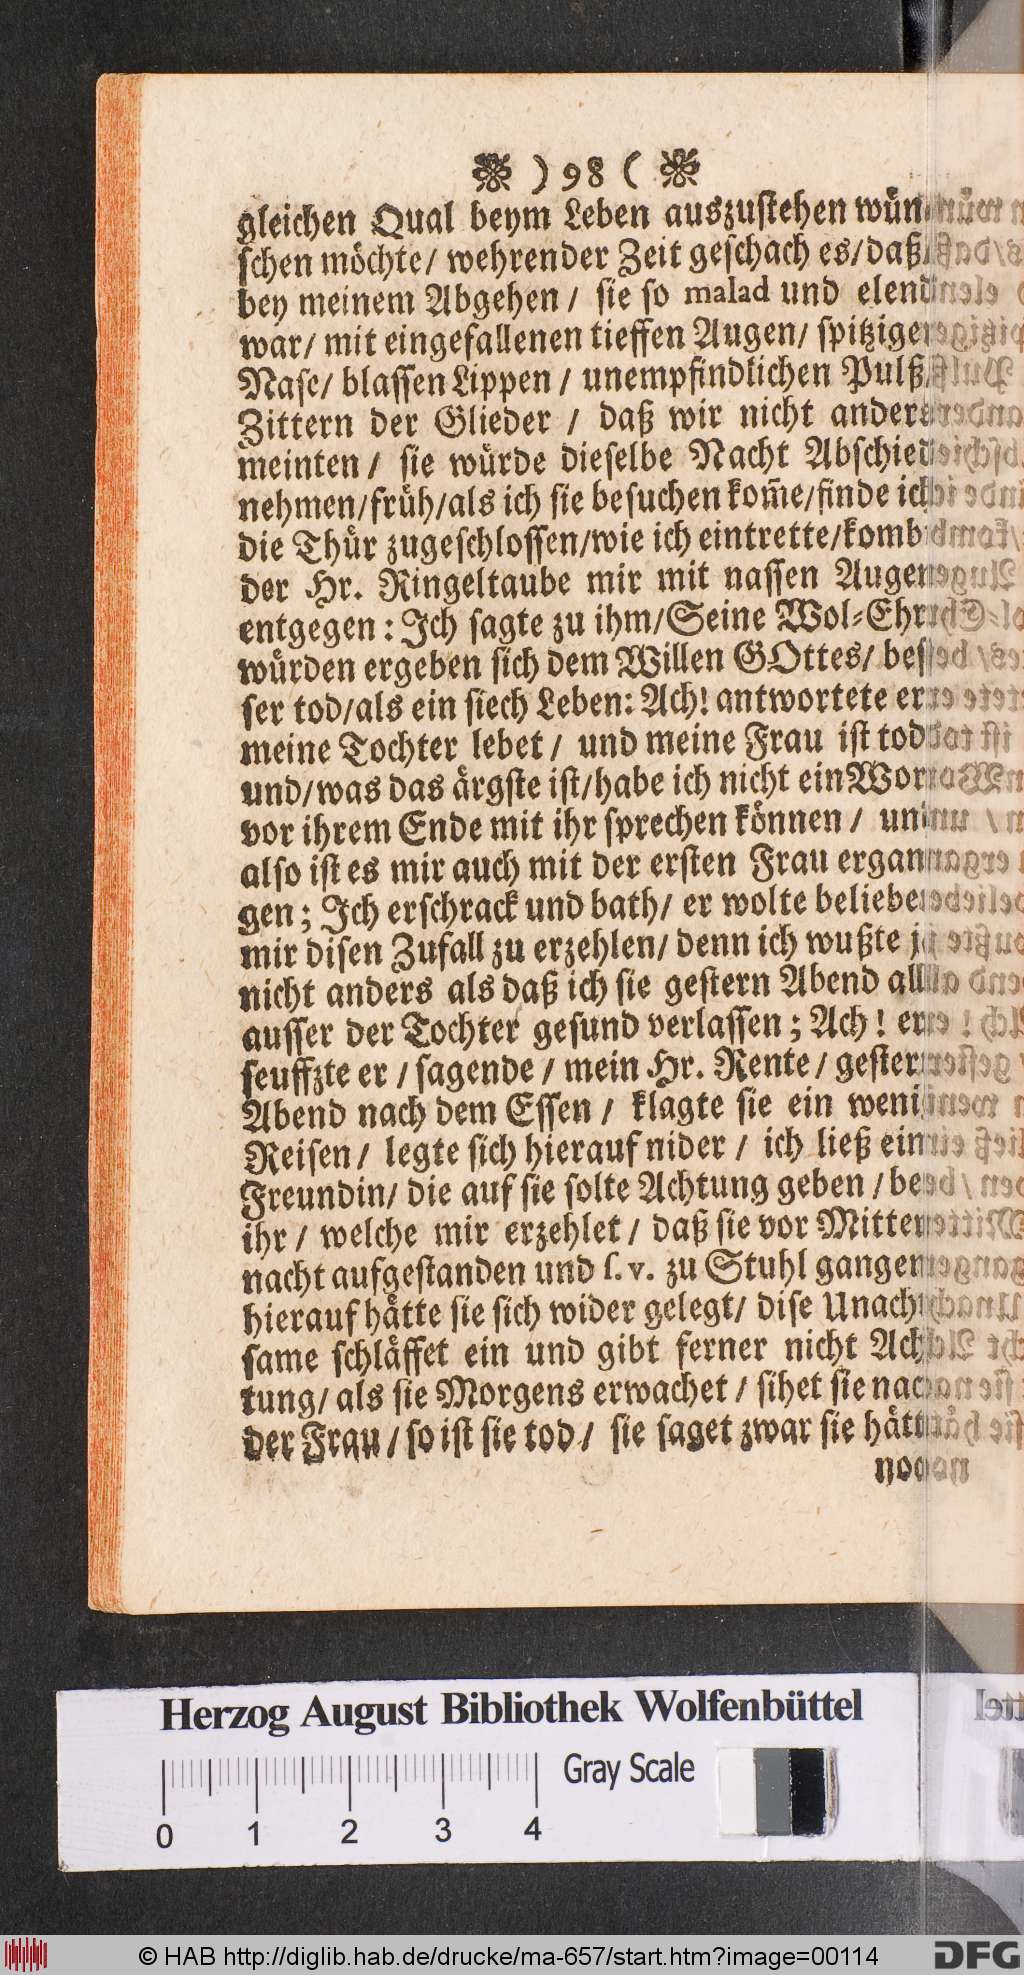 ) 98 (
gleichen Qual beym Leben auszustehen wün-
schen möchte/ wehrender Zeit geschach es/daß/
bey meinem Abgehen / sie so malad und elend
war/ mit eingefallenen tieffen Augen/ spitziger
Nase/ blassen Lippen / unempfindlichen Pulß/
Zittern der Glieder / daß wir nicht anders
meinten / sie würde dieselbe Nacht Abschied
nehmen/früh/als ich sie besuchen kom̃e/finde ich
die Thür zugeschlossen/wie ich eintrette/komb
der Hr. Ringeltaube mir mit nassen Augen
entgegen: Ich sagte zu ihm/Seine Wol-Ehr
würden ergeben sich dem Willen GOttes/ bes-
ser tod/als ein siech Leben: Ach! antwortete er
meine Tochter lebet / und meine Frau ist tod
und/was das ärgste ist/habe ich nicht ein Wor
vor ihrem Ende mit ihr sprechen können / un
also ist es mir auch mit der ersten Frau ergan-
gen; Ich erschrack und bath/ er wolte belieben
mir disen Zufall zu erzehlen/ denn ich wußte ja
nicht anders als daß ich sie gestern Abend all
ausser der Tochter gesund verlassen; Ach! er
seuffzte er / sagende / mein Hr. Rente / gestern
Abend nach dem Essen / klagte sie ein wenig
Reisen / legte sich hierauf nider / ich ließ ein
Freundin/ die auf sie solte Achtung geben / be
ihr / welche mir erzehlet / daß sie vor Mitter
nacht aufgestanden und s. v. zu Stuhl gangen
hierauf hätte sie sich wider gelegt/ dise Unacht
same schläffet ein und gibt ferner nicht Ach
tung/ als sie Morgens erwachet / sihet sie nac
der Frau / so ist sie tod / sie saget zwar sie hätt
noo
Herzog August Bibliothek Wolfenbüttel
0 1 2 3 4
Gray Scale
© HAB http://diglib.hab.de/drucke/ma-657/start.htm?image=00114
DFG